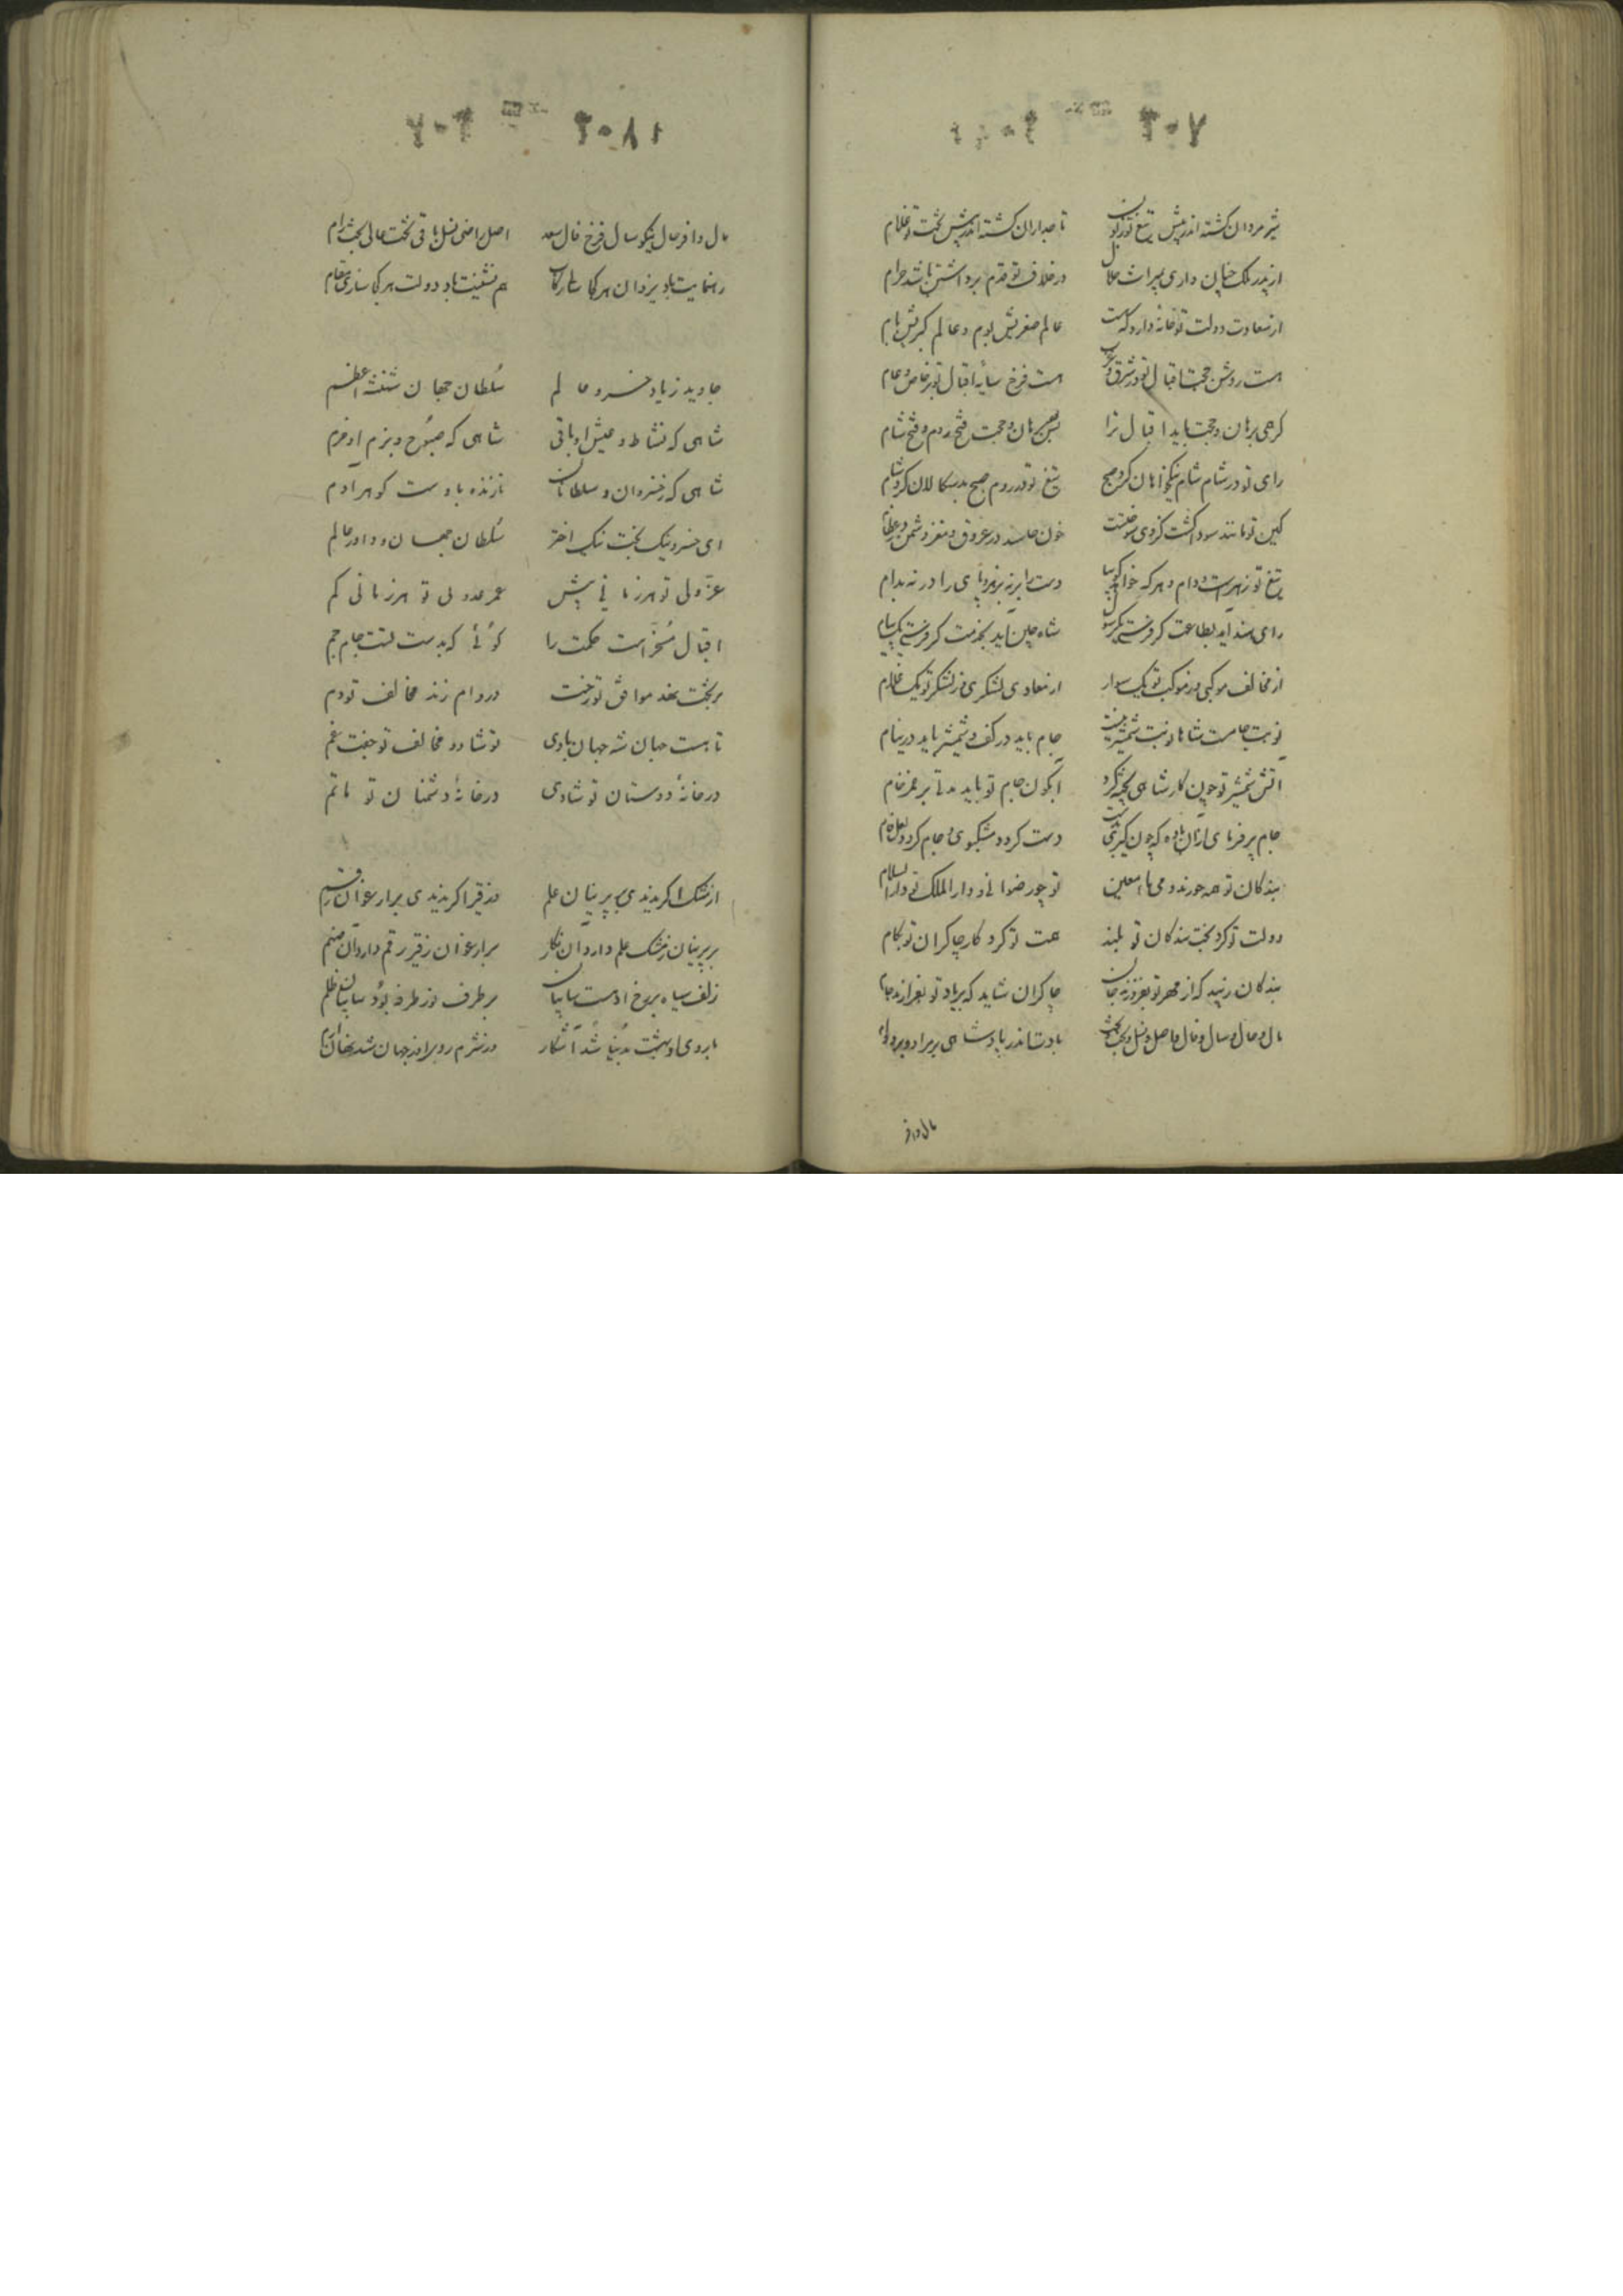 شیرمردان کشته اندر پیش تیغ تو زبون تاجداران کشته اندر پیش تخت تو غلام
از پدر ملک جهان داری بمیراث حلال در خلاف تو قدم برداشتن باشد حرام
از سعادت دولت تو خانهٔ دارد که هست عالم صغریش بوم و عالم کبریش بام
هست روشن حجت اقبال تو در شرق و غرب هست فرخ سایه اقبال تو بر خاص و عام
کرهمی برهان و حجت باید اقبال ترا بس برهان و حجت فتح روم و فتح شام
رای تو در شام شام نیکخواهان کرد صبح تیغ تو در روم صبح بدسکالان کرد شام
کین تو مانند سودا کشت کزوی سوختست خون حاسد در عروق و مغز دشمن در عظام
تیغ تو زهرست و دام و هر که خواهد
رای هند آید بطاعت کر فرستی یک رسول شاه چین آید بخدمت کر فرستی یک پیام
از مخالف موکبی وز موکب تو یک سوار از معادی لشکری وز لشکر تو یک غلام
نوبت جامست شاها نوبت شمشیر نیست جام باید در کف و شمشیر باید در نیام
آتش شمشیر تو چون کار شاهی پخته کرد آبگون جام تو باید مدتی بر عزم خام
جام پر فرمای ازان باده که چون کیری بدست دست کردد مشکبوی و جام کردد لعل فام
بندکان تو همه حورند و می ماء معین تو چو رضوانی و دار الملک تو دار السلام
دولت تو کرد بخت بندکان تو بلند همت تو کرد کار چاکران تو بکام
بندکان زیبد که از مهر تو بفروزند جان چاکران شاید که بر یاد تو بفرازند جام
مال و حال و سال و فال و اصل و نسل و تخت و بخت بادت اندر پادشاهی بر مراد و بر دوام
مال وافر
مال وافر حال نیکو سال فرخ فال سعد اصل راضی نسل باقی تخت عالی بخت رام
رهنمایت باد یزدان هر کجا هم نشینت باد دولت هر کجا سازی مقام
جاوید زیاد خسرو عالم سلطان جهان شهنشه اعظم
شاهی که نشاط و عیش او باقی شاهی که صبوح و بزم او خرم
شاهی که ز خسروان و سلطانان نازنده باوست کوهر آدم
ای خسرو نیک بخت نیک اختر سلطان جهان و داور عالم
عز ولی تو هر زمانی بیش عمر عدوی تو هر زمانی کم
اقبال مسخر است حکمت را کوئی که بدست تست جام جم
بر تخت نهد موافق تو رخت در دام زند مخالف تو دم
تا هست جهان شه جهان بادی تو شاد و مخالف تو جفت غم
در خانهٔ دوستان تو شادی در خانهٔ دشمنان تو ماتم
از مشک اکر ندیدی بر پرنیان علم ور قیر اکر ندیدی بر ارغوان رقم
بر پرنیان ز مشک علم دارد آن نکار بر ارغوان ز قیر رقم دارد آن صنم
زلف سیاه بر رخ او هست سایبان بر طرف نور طرفه بود سایبان ظلم
تا روی او بهشت بدنیا شد آشکار در شرم روی او ز جهان شد نهان ارم